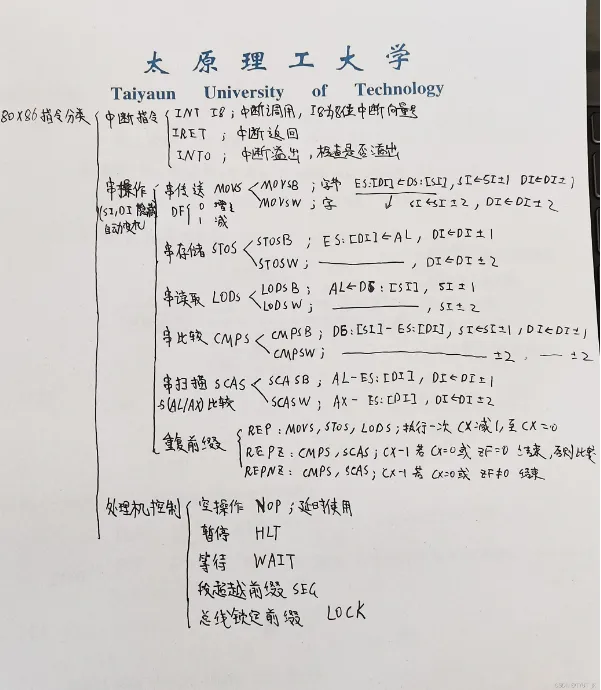 太原理工大学
Taiyaun University of Technology
80X86指令分类
中断指令 INT I8 ; 中断调用, I8为8位中断向量号
IRET ; 中断返回
INTO ; 中断溢出, 检查是否溢出
串操作
(SI,DI
自动变化)
串传送 MOVS MOVSB ; 字节 ES:[DI]←DS:[SI], SI←SI±1 DI←DI±1
DF 0 增 MOVSW ; 字 ↓ SI←SI±2, DI←DI±2
1 减
串存储 STOS STOSB ; ES:[DI]←AL, DI←DI±1
STOSW ; ———, DI←DI±2
串读取 LODS LODSB ; AL←DS:[SI], SI±1
LODSW ; ———, SI±2
串比较 CMPS CMPSB ; DS:[SI]-ES:[DI], SI←SI±1, DI←DI±1
CMPSW ; ——— ±2, — ±2
串扫描 SCAS SCASB ; AL-ES:[DI], DI←DI±1
与(AL/AX)比较 SCASW ; AX-ES:[DI], DI←DI±2
重复前缀 REP : MOVS, STOS, LODS ; 执行一次 CX减1, 至 CX=0
REPZ : CMPS, SCAS ; CX-1 若 CX=0或 ZF=0 结束, 否则比较
REPNZ : CMPS, SCAS ; CX-1 若 CX=0或 ZF≠0 结束
处理机控制 空操作 NOP ; 延时使用
暂停 HLT
等待 WAIT
段超越前缀 SEG
总线锁定前缀 LOCK